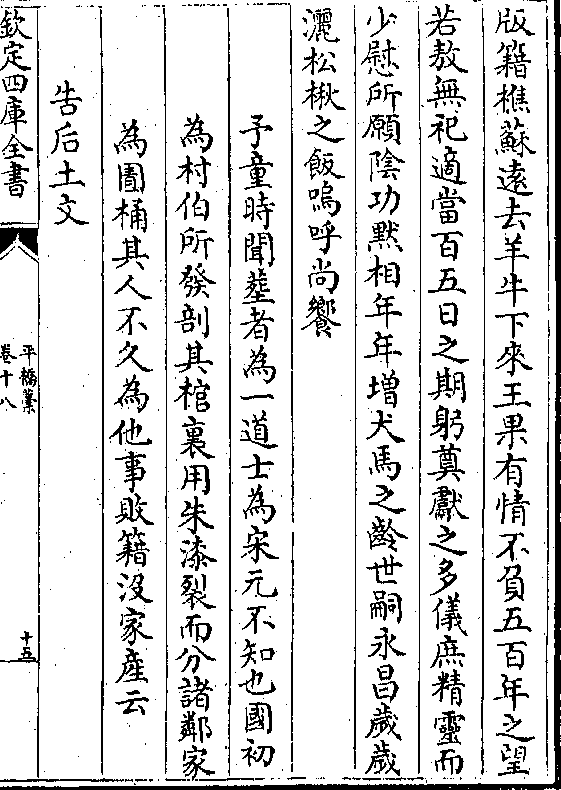 版籍樵蘇遠去羊牛下來王果有情不負五百年之望
若敖無祀適當百五日之期躬奠獻之多儀庶精靈而
少慰所願陰功黙相年年增犬馬之齡世嗣永昌歲歲
灑松楸之飯嗚呼尚饗
予童時聞塟者為一道士為宋元不知也國初
為村伯所發剖其棺裏用朱漆裂而分諸鄰家
為圊桶其人不久為他事敗籍沒家産云
告后土文
欽定四庫全書
平橋藁
卷十八
十五